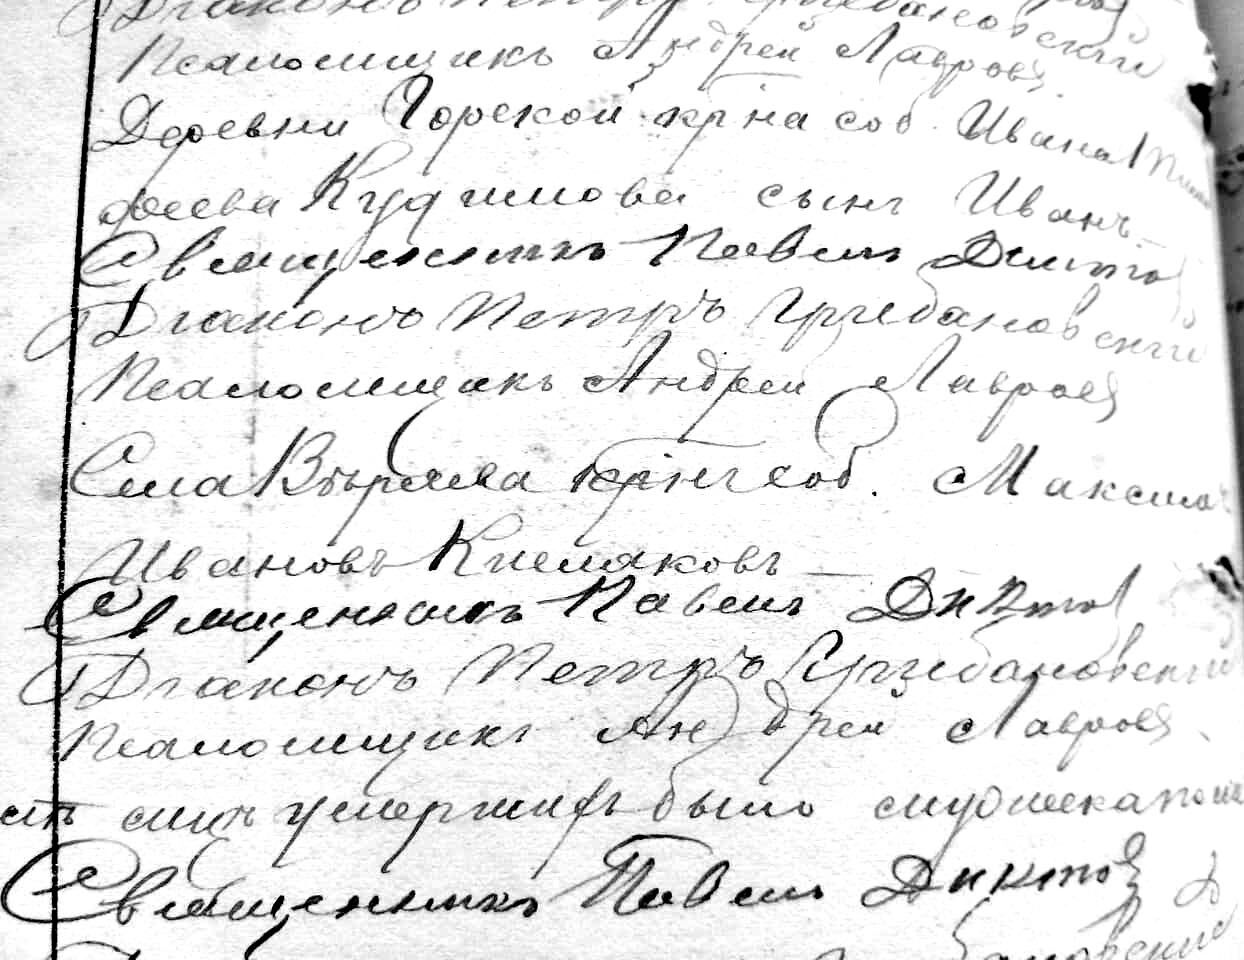 Діаконъ Петръ Грибановскій
Псаломщикъ Андрей Лавровъ
Деревни Горской кр–на соб. Ивана Тимо
феева Кудимова сынъ Иванъ.
Священникъ Павелъ Диктов
Діаконъ Петръ Грибановскій
Псаломщикъ Андрей Лавровъ
Села Вѣряева кр–нъ соб. Максимъ
Ивановъ Кисляковъ
Священникъ Павелъ Диктов
Діаконъ Петръ Грибановскій
Псаломщикъ Андрей Лавровъ
умершихъ было мужеска пола
Священникъ Павелъ Диктов